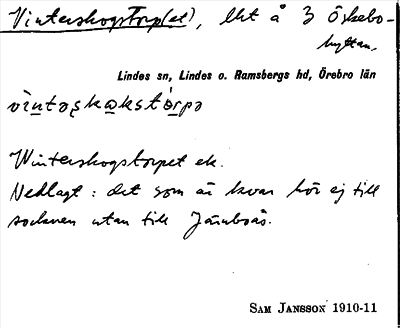 Vinterskogstorp(et), lht å 3 Öskebo-
hyttan,
Lindes sn, Lindes o. Ramsbergs hd, Örebro län
vìntəʂkakstórpə
Winterskogstorpet ek.
Nedlagt: det som är kvar hör ej till
socknen utan till Järnboås.
SAM JANSSON 1910-11